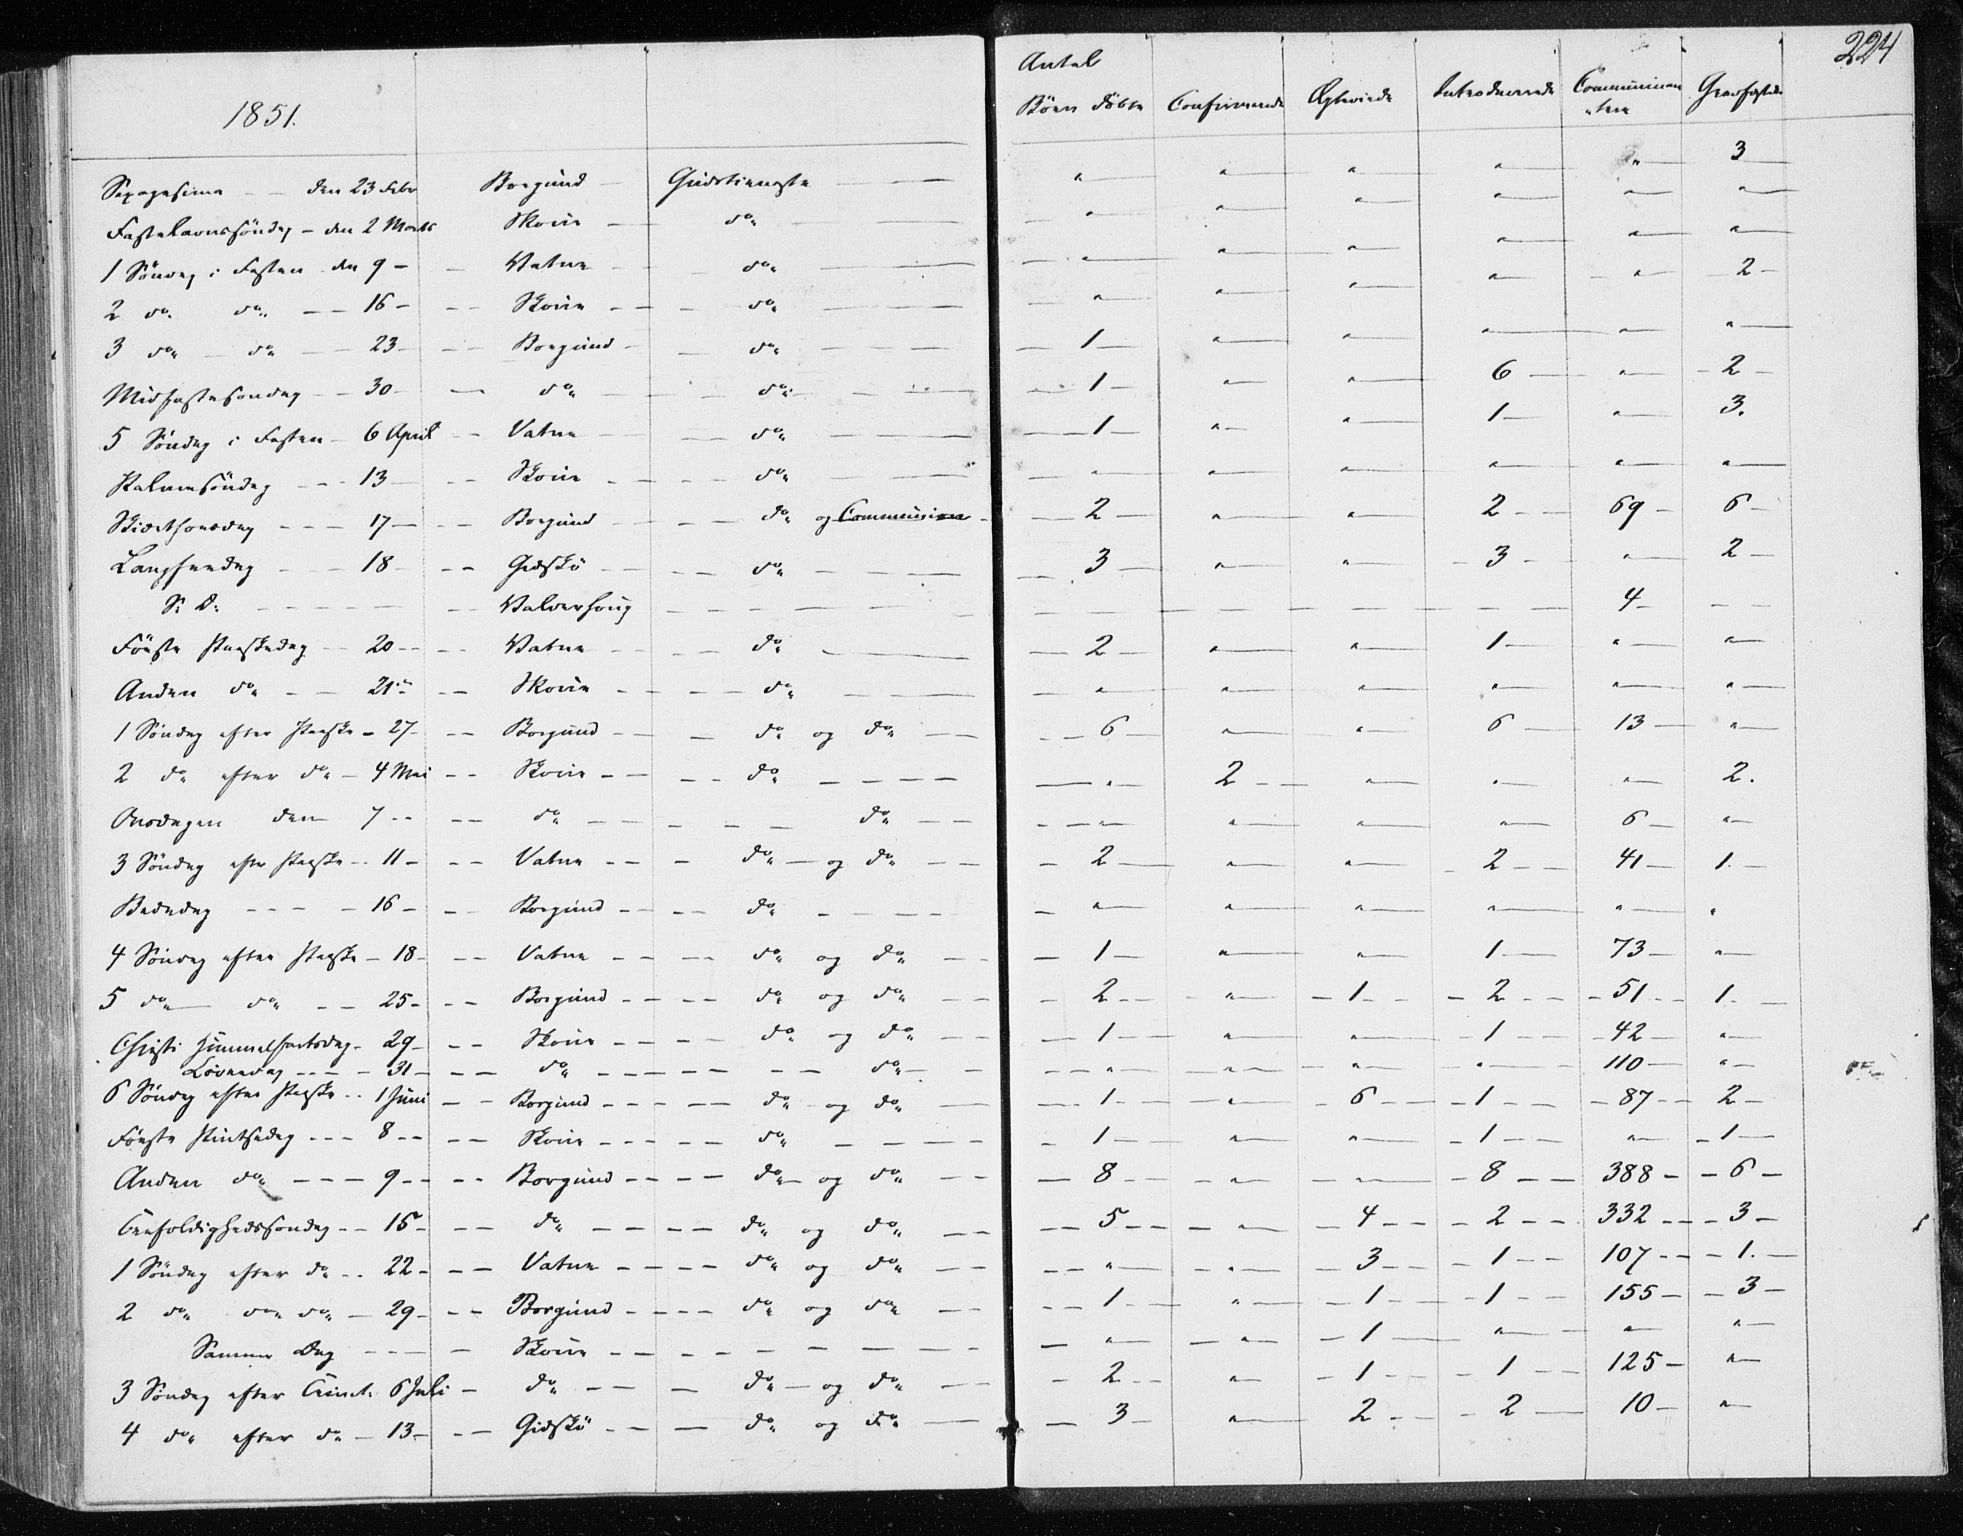 224
1851.
Antal
Börn döbte Confirmerede Ægteviede Introducerede Communican
tere Gravfæstede
Sexagesima - - den 23 Febr Borgund Gudstieneste - - " " " " " 3
Fastelavnssöndag - den 2 Marts Skoue - do " " " " " "
1 Söndag i Fasten den 9 - - Vatne - do " " " " " "
2 do do - - 16 - - - Skoue - - do " " " " " 2
3 do - do - - 23 - - - Borgund - do 1 " " " " "
Midfastesöndag - - 30 - - do - do 1 " " 6 " 2
5 Söndag i Fasten - 6 April - - Vatne - do 1 " " 1 " 3.
Palmesöndag - - - 13 - - - Skoue - do " " " " " "
Skiertorsdag - - - 17 - - - Borgund - do og Communion - 2 " " 2 69 6
Langfredag - - 18 - - - Gidskö - do 3 " " 3 " 2
S: D: - - - - - Valderhoug - - - - - - - - - 4 - -
Förste Paaskedag - - 20 - - - Vatne - do 2 " " 1 " "
Anden do - - 21 - - - Skoue - do " " " " " "
1 Söndag efter Paaske - 27 - - - Borgund - do og do - - 6 " " 6 13 "
2 do efter do - 4 Mai - - Skoue - - do - - - - " 2 " " " 2.
Onsdagen den 7 - - - - do - - - - - do - - " " " " 6 "
3 Söndag eftr Paaske - - 11 - - - Vatne - - - do - og do - - 2 " " 2 41 1
Bededag - - - - 16 - - - Borgund - - - - do - - - - " " " " " "
4 Söndag efter Paaske - 18 - - - Vatne - - - - do og do - - 1 " " 1 73 "
5 do - do - - 25 - - - Borgund - - - - do og do - - 2 " 1 2 51 1
Christi Himmelfartsdag - 29 - - - Skoue - - - - do og do - - 1 " " 1 42 "
Löverdag - - - - 31 - - - do - - - - - - do - - " " " " 110 "
6 Söndag efter Paaske - - 1 Juni - - Borgund - - - - do og do - 1 " 6 1 87 2
Förste Pintsedag - - - 8 - - - - Skoue - - - - - do - - - - 1 " " 1 " 1
Anden do - - - - 9 - - - - Borgund - - - - do og do - - 8 " " 8 388 6
Treefoldighedssöndag - - 15 - - - do - - - - do og do - - 5 " 4 2 332 3
1 Söndag efter do - - 22 - - - Vatne - - - - do og do - - " " 3 1 107 1
2 do do do - 29 - - - Borgund - - - - do og do - - 1 " 1 1 155 3
Samme Dag - - - - Skoue - - - - - - - - - " " 1 " " "
3 Söndag efter Trinit: 6 Juli - do - - - do - og do - - 2 " 1 1 125 "
4 do efter do - 13 - - - Gidskö - - - do og do - 3 " 2 2 10 "